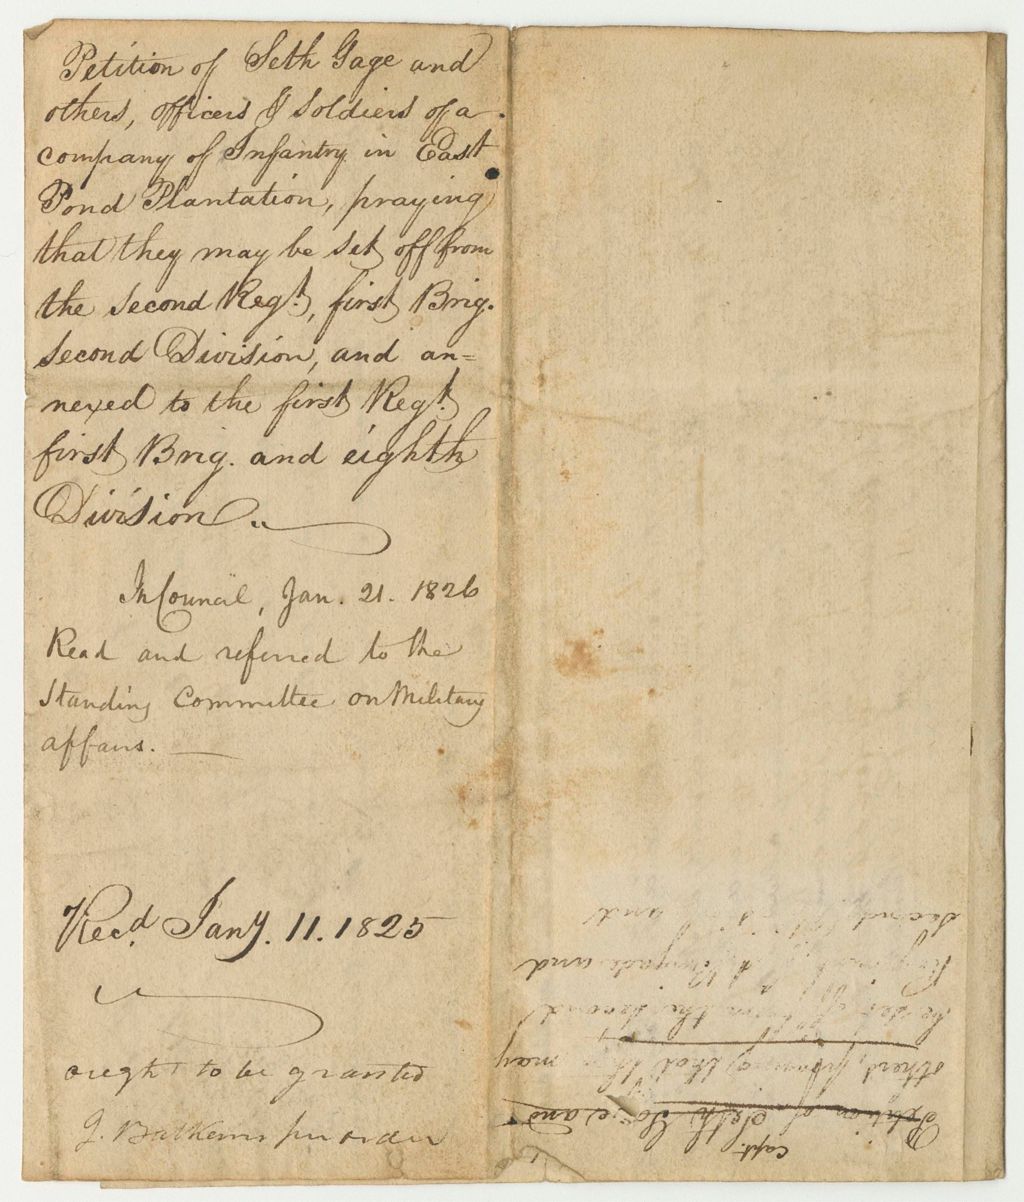 Petition of Seth Gage and
others, officers & soldiers of a
company of Infantry in East
Pond Plantation, praying
that they may be set off from
the second Regt, first Brig.
second Division, and an=
nexed to the first Regt
first Brig. and eighth
Division.
In Council, Jan. 21. 1826
Read and referred to the
Standing Committee on Military
affairs.
Recd Jany. 11. 1825
ought to be granted
J. per order
Capt.
Petition of Seth Gage and
others, praying that they may
be set off from the second
Regiment, first Brigade and
second Division and